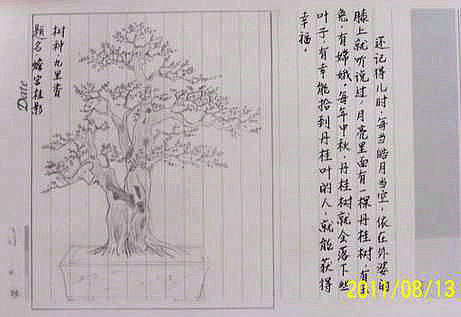 还记得儿时,每当皓月当空,依在外婆的
膝上就听说过,月亮里面有一棵丹桂树,有玉
兔,有嫦娥,每年中秋,丹桂树就会落下些
叶子,有幸能拾到丹桂叶的人,就能获得
幸福。
树种 九里香
题名 蟾宫桂影
Date
2011/08/13